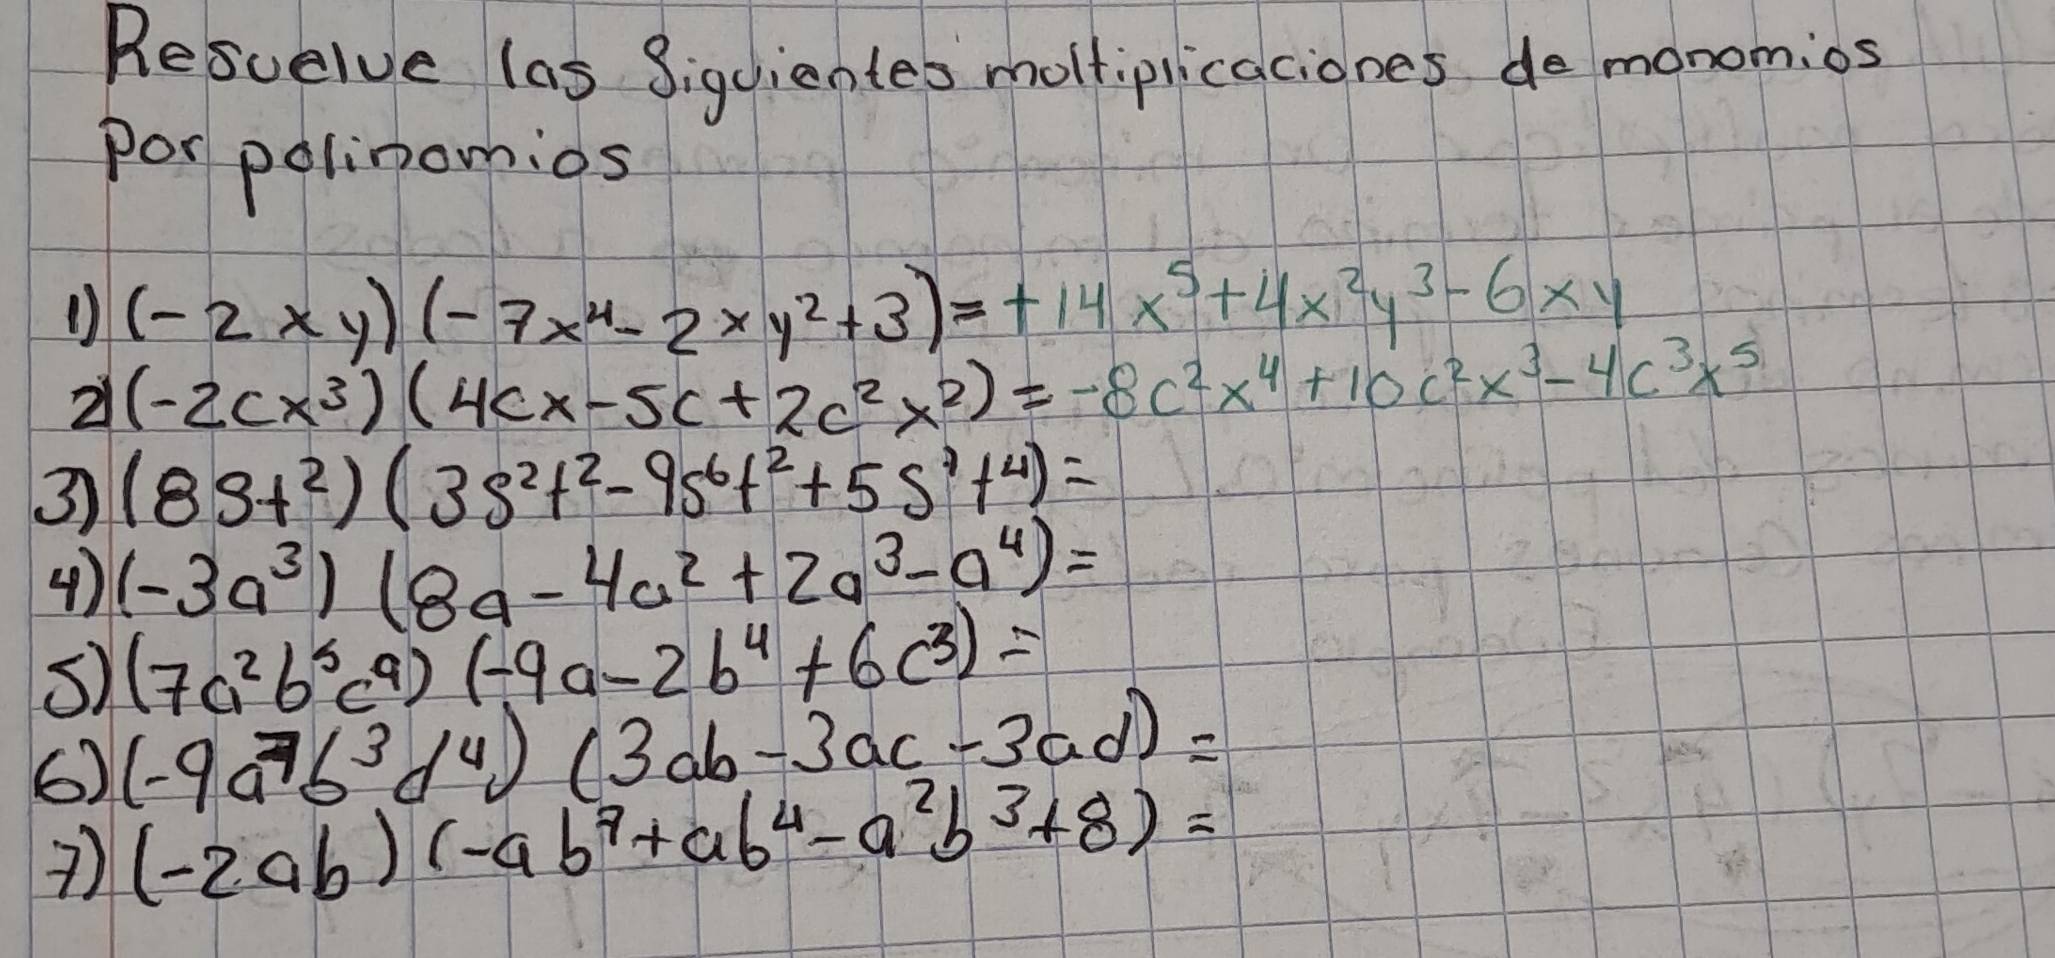 Resuelve las Siguientes moltiplicaciones de monomios
por polinomios
1) (-2xy) (-7x⁴-2xy²+3)= +14x⁵+4x²y³-6xy
2) (-2cx³) (4cx-5c+2c²x²) = -8c²x⁴+10c²x³-4c³x⁵
3) (8st²) (3s²t²-9s⁶t²+5s⁷t⁴)=
4) (-3a³) (8a-4a²+2a³-a⁴)=
5) (7a²b⁵c⁹) (-9a-2b⁴+6c³)=
6) (-9a⁷b³d⁴) (3ab-3ac-3ad) =
7) (-2ab) (-ab⁷+ab⁴-a²b³+8) =